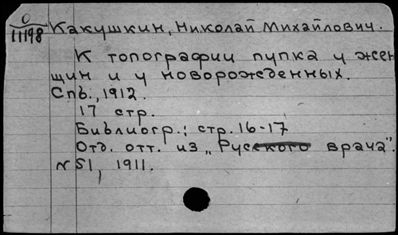 О
11198
Какушкин, Николай Михайлович.
К топографии пупка у жен
щин и у новорожденных.
Спб., 1912.
17 стр.
Библиогр.: стр. 16-17
Отд. отт. из „Русского врача".
N 51, 1911.